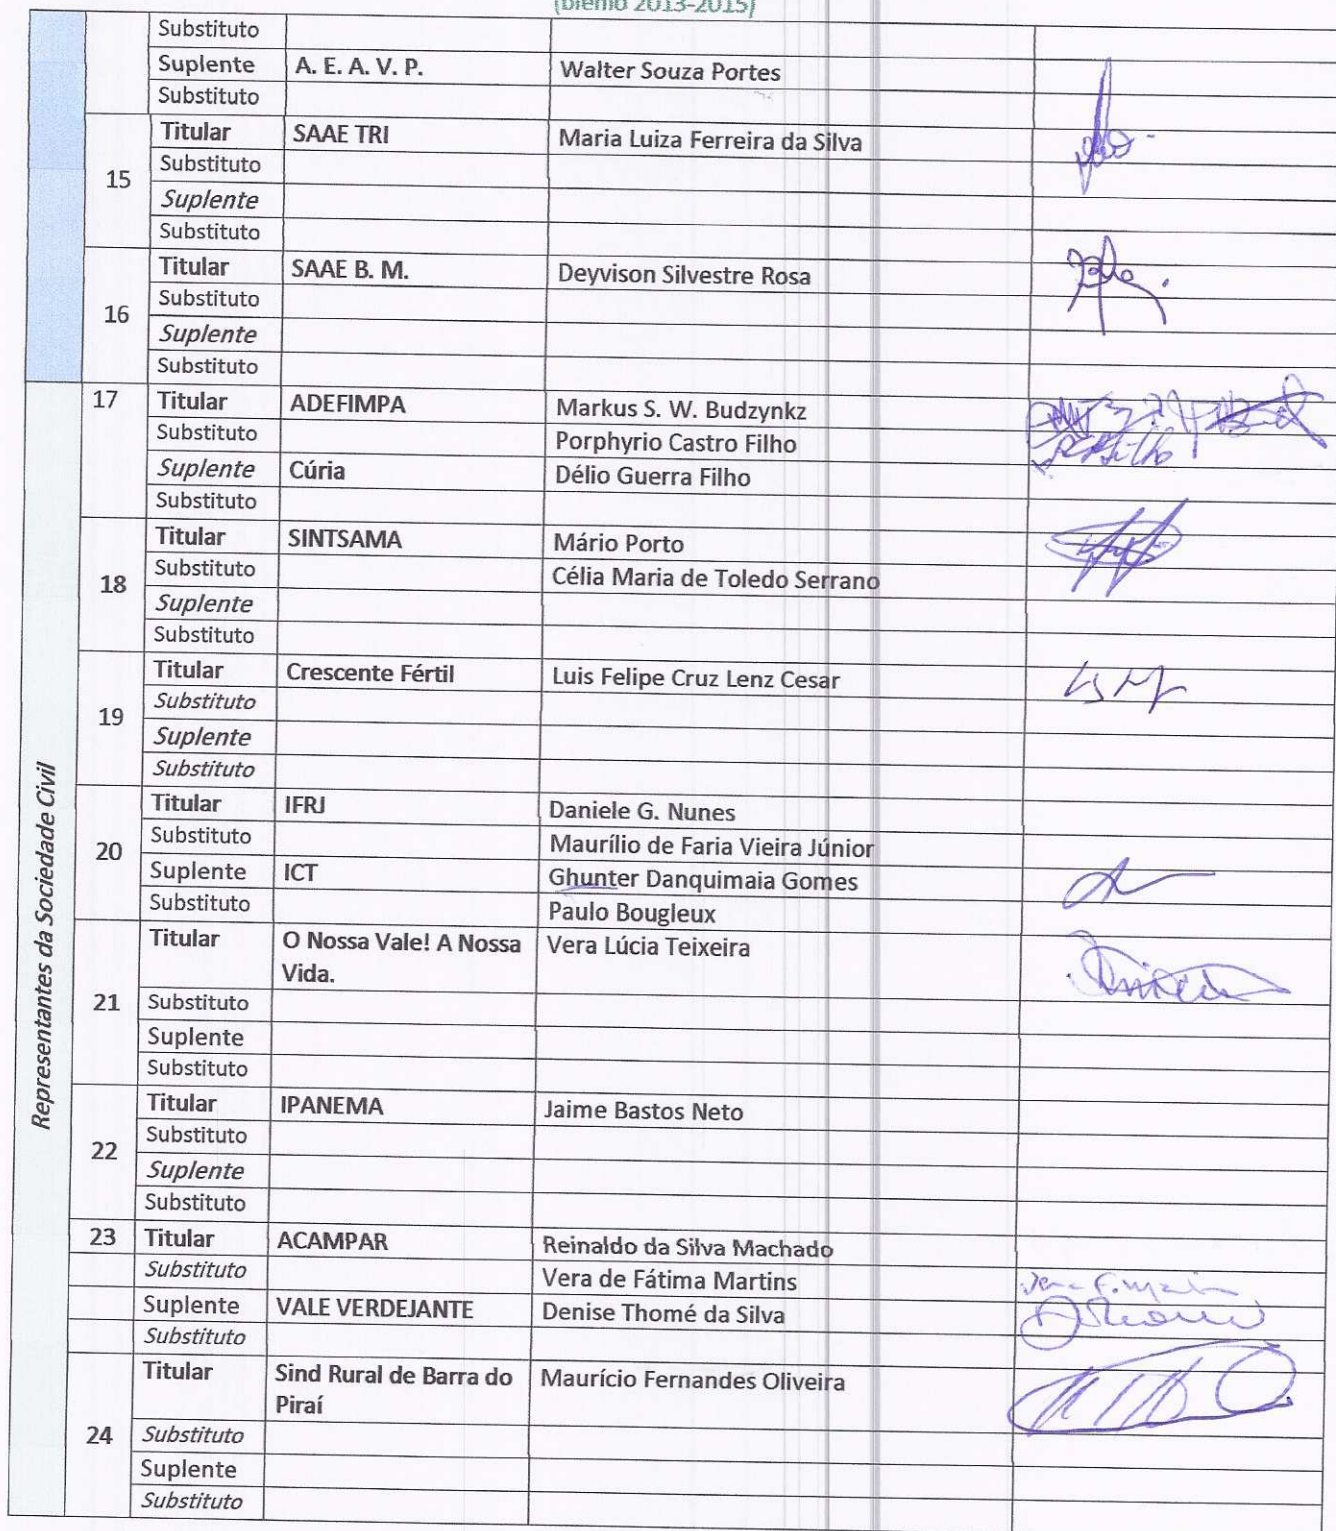 (biênio 2013-2015)
Substituto
Suplente A. E. A. V. P. Walter Souza Portes
Substituto
15
Titular SAAE TRI Maria Luiza Ferreira da Silva
Substituto
Suplente
Substituto
16
Titular SAAE B. M. Deyvison Silvestre Rosa
Substituto
Suplente
Substituto
Representantes da Sociedade Civil
17 Titular ADEFIMPA Markus S. W. Budzynkz
Substituto Porphyrio Castro Filho
Suplente Cúria Délio Guerra Filho
Substituto
18
Titular SINTSAMA Mário Porto
Substituto Célia Maria de Toledo Serrano
Suplente
Substituto
19
Titular Crescente Fértil Luis Felipe Cruz Lenz Cesar
Substituto
Suplente
Substituto
20
Titular IFRJ Daniele G. Nunes
Substituto Maurílio de Faria Vieira Júnior
Suplente ICT Ghunter Danquimaia Gomes
Substituto Paulo Bougleux
21
Titular O Nossa Vale! A Nossa Vera Lúcia Teixeira
Vida.
Substituto
Suplente
Substituto
22
Titular IPANEMA Jaime Bastos Neto
Substituto
Suplente
Substituto
23 Titular ACAMPAR Reinaldo da Silva Machado
Substituto Vera de Fátima Martins
Suplente VALE VERDEJANTE Denise Thomé da Silva
Substituto
24
Titular Sind Rural de Barra do Maurício Fernandes Oliveira
Piraí
Substituto
Suplente
Substituto